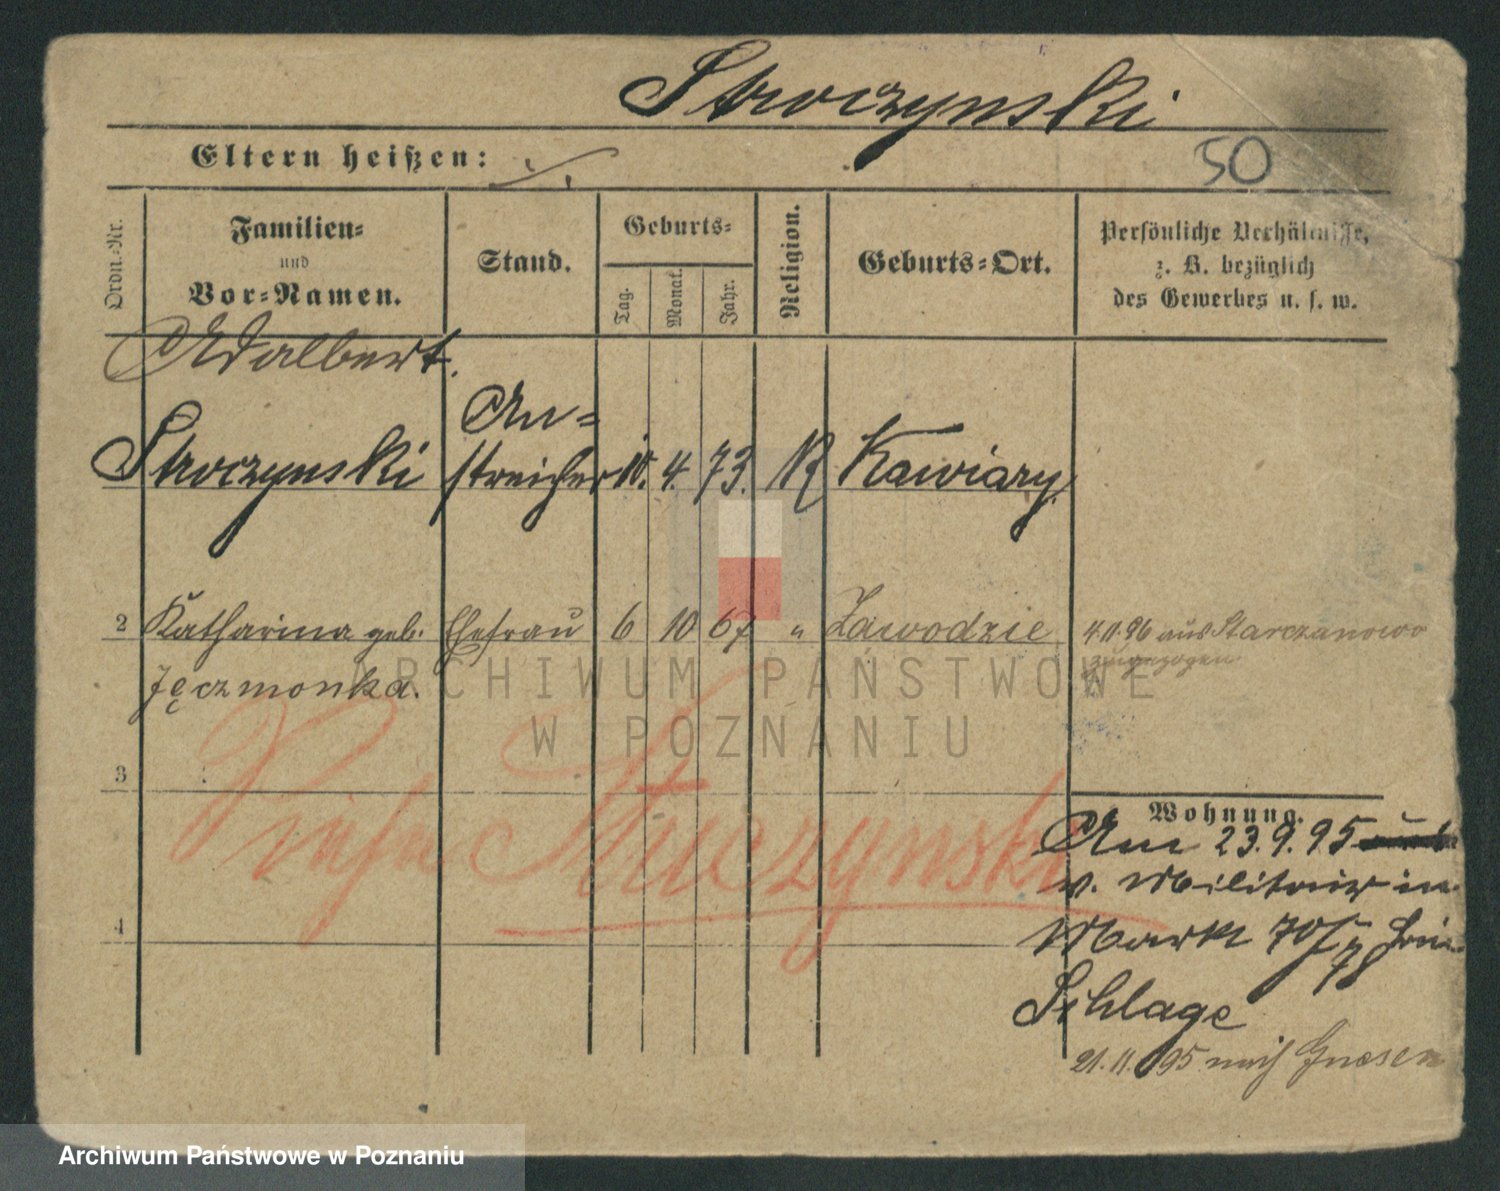 Stroczynski
Eltern heißen: ./.
50
Ordn.-Nr.
Familien-
und
Vor-Namen.
Stand.
Geburts-
Tag.
Monat.
Jahr.
Religion.
Geburts-Ort.
Persönliche Verhältnisse,
z. B. bezüglich
des Gewerbes u. s. w.
Adalbert
Stroczynski
An-
streicher
10. 4. 73.
Kawiary
2 Katharina geb. Ehefrau 6 10 67 " Zawodzie 4.11.96 aus Starczanowo
Jęczmonka. zugezogen
ARCHIWUM PAŃSTWOWE
W POZNANIU
3
Stuczynski
Wohnung.
Am 23.9.95
v. Militair in
Markt 70/78 bei
Schlage
4
21.11.95 nach Gnesen
Archiwum Państwowe w Poznaniu